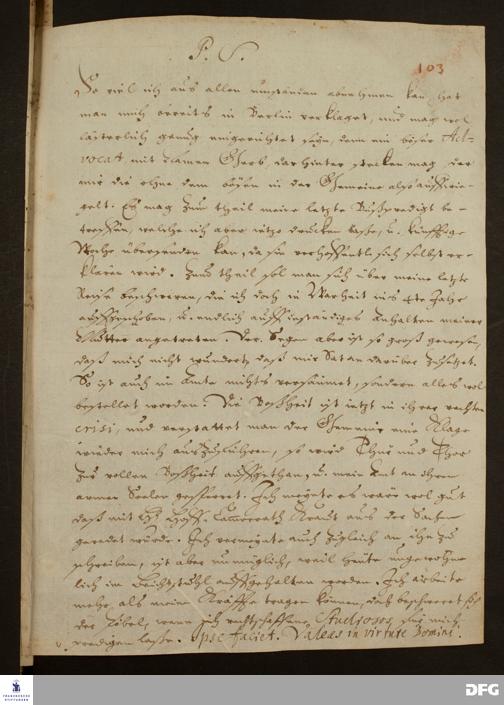 P. S.
103
So viel ich aus allen umständen abnehmen kan, hat
man mich bereits in Berlin verklaget, und mag wol
lästerlich genug eingerichtet seyn, denn ein böser Ad-
vocat mit Namen darhinter stecken mag, der
mir die ohne dem bösen in der Gemeine
Es mag zum theil meine letzte Bußpredigt be-
treffen, welche ich aber itzo drucken laße, u. künfftige
Woche übersenden kan, da sie verhoffentlich sich selbst er-
klären wird. Zum theil sol man sich über meine letzte
Reise beschweren, die ich doch in Warheit ins 4te Jahr
auffgeschoben, u. endlich auff inständiges Anhalten meiner
Mutter angetreten. Der Segen aber ist so groß gewesen,
daß mich nicht wundert, daß mir Satan darüber zusetzet.
So ist auch im Amte nichts versäumet, sondern alles wol
bestellet worden. Die Boßheit ist ietzt in ihrer rechten
crisi, und verstattet man der Gemeine eine Klage
wieder mich auszuführen, so wird Thür und Thor
zur vollen Boßheit auffgethan, u. mein Amt an ihren
armen Seelen gesperret. Ich meynete es wäre wol gut
daß mit H. Hoff- Cammerrath Kraut aus der Sache
geredet würde. Ich vermeynte auch zugleich an ihn zu
schreiben, ist aber unmüglich, weil heute ungewöhn-
lich im Beichtstuhl auffgehalten worden. Ich arbeite
mehr, als meine Kräffte tragen können, das beschweret sich
der Pöbel, wenn ich rechtschaffene Studiosos für mich
predigen laße. Ipse faciet. Valeas in virtute Domini.
FRANCKESCHE
STIFTUNGEN
DFG